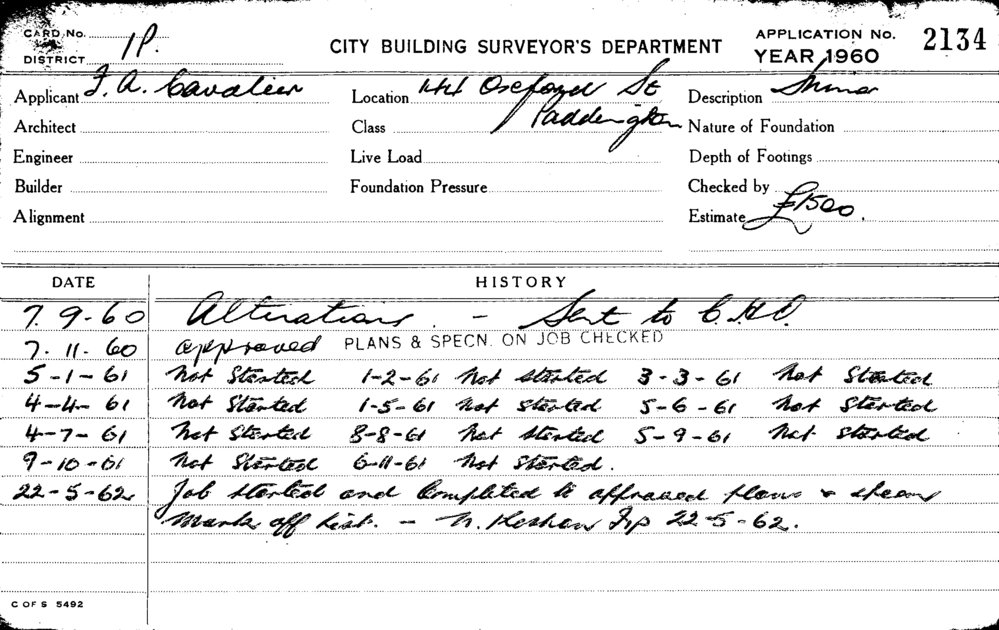 CARD No.
DISTRICT 1P.
CITY BUILDING SURVEYOR'S DEPARTMENT
APPLICATION No. 2134
YEAR 1960
Applicant F. A. Cavalier Location 144 Oxford St Description
Architect Class Paddington Nature of Foundation
Engineer Live Load Depth of Footings
Builder Foundation Pressure Checked by
Alignment Estimate £1500.
DATE HISTORY
7.9.60 Alterations. - Sent to C.H.O.
7.11.60 approved PLANS & SPECN. ON JOB CHECKED
5-1-61 Not Started 1-2-61 Not started 3-3-61 Not Started
4-4-61 Not Started 1-5-61 Not started 5-6-61 Not Started
4-7-61 Not Started 8-8-61 Not started 5-9-61 Not started
9-10-61 Not Started 6-11-61 Not Started.
22-5-62 Job started and Completed to approved plans & specns
Mark off list. - Insp 22-5-62.
C OF S 5492